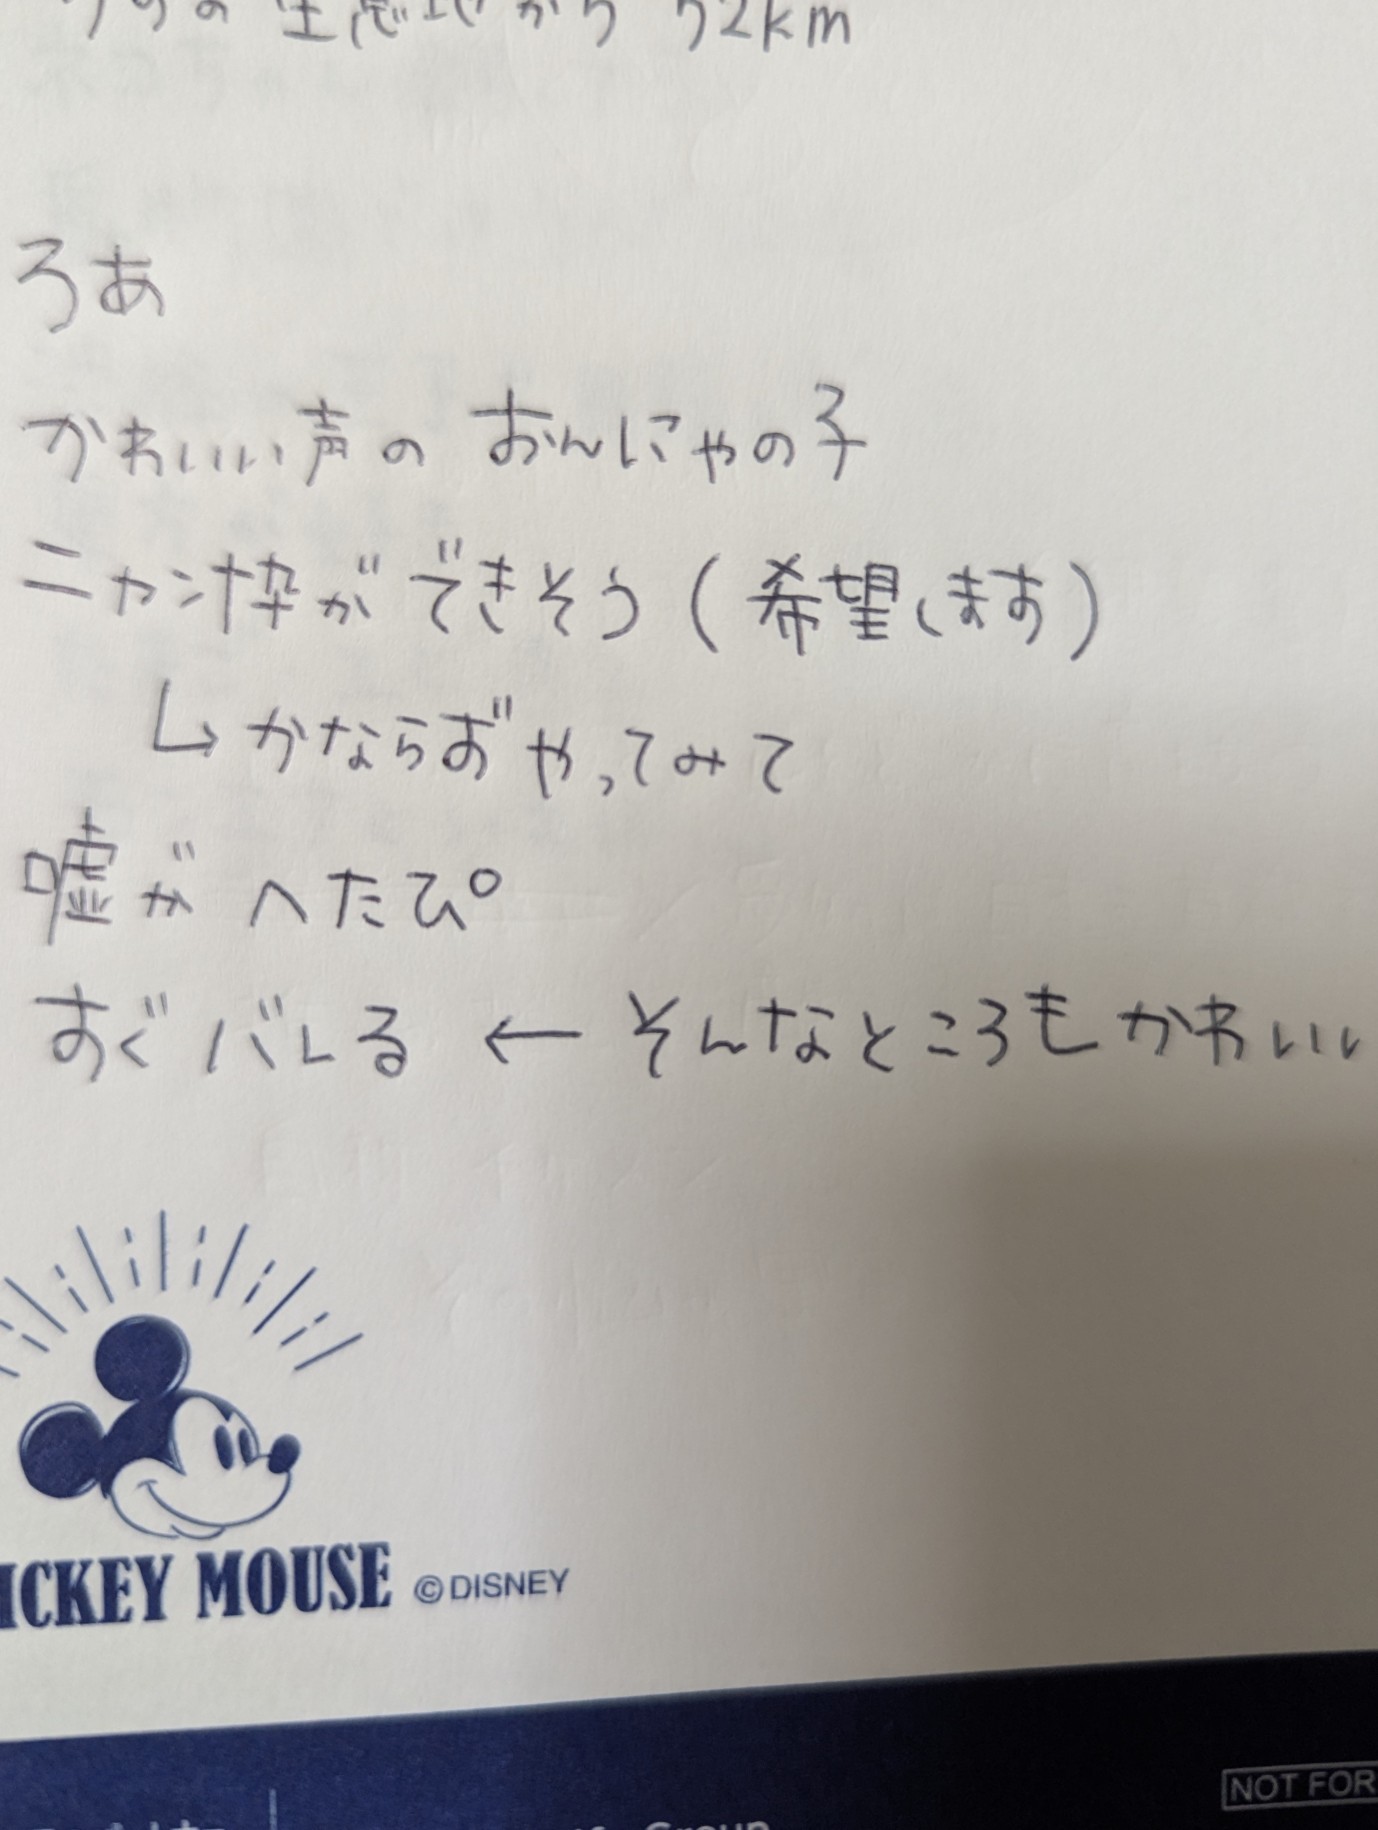 の生息地から 72km
ろあ
かわいい声の おんにゃの子
ニャン枠ができそう(希望します)
↳かならずやってみて
嘘が へたぴ
すぐバレる ← そんなところもかわいい
ICKEY MOUSE ©DISNEY
NOT FOR
Group